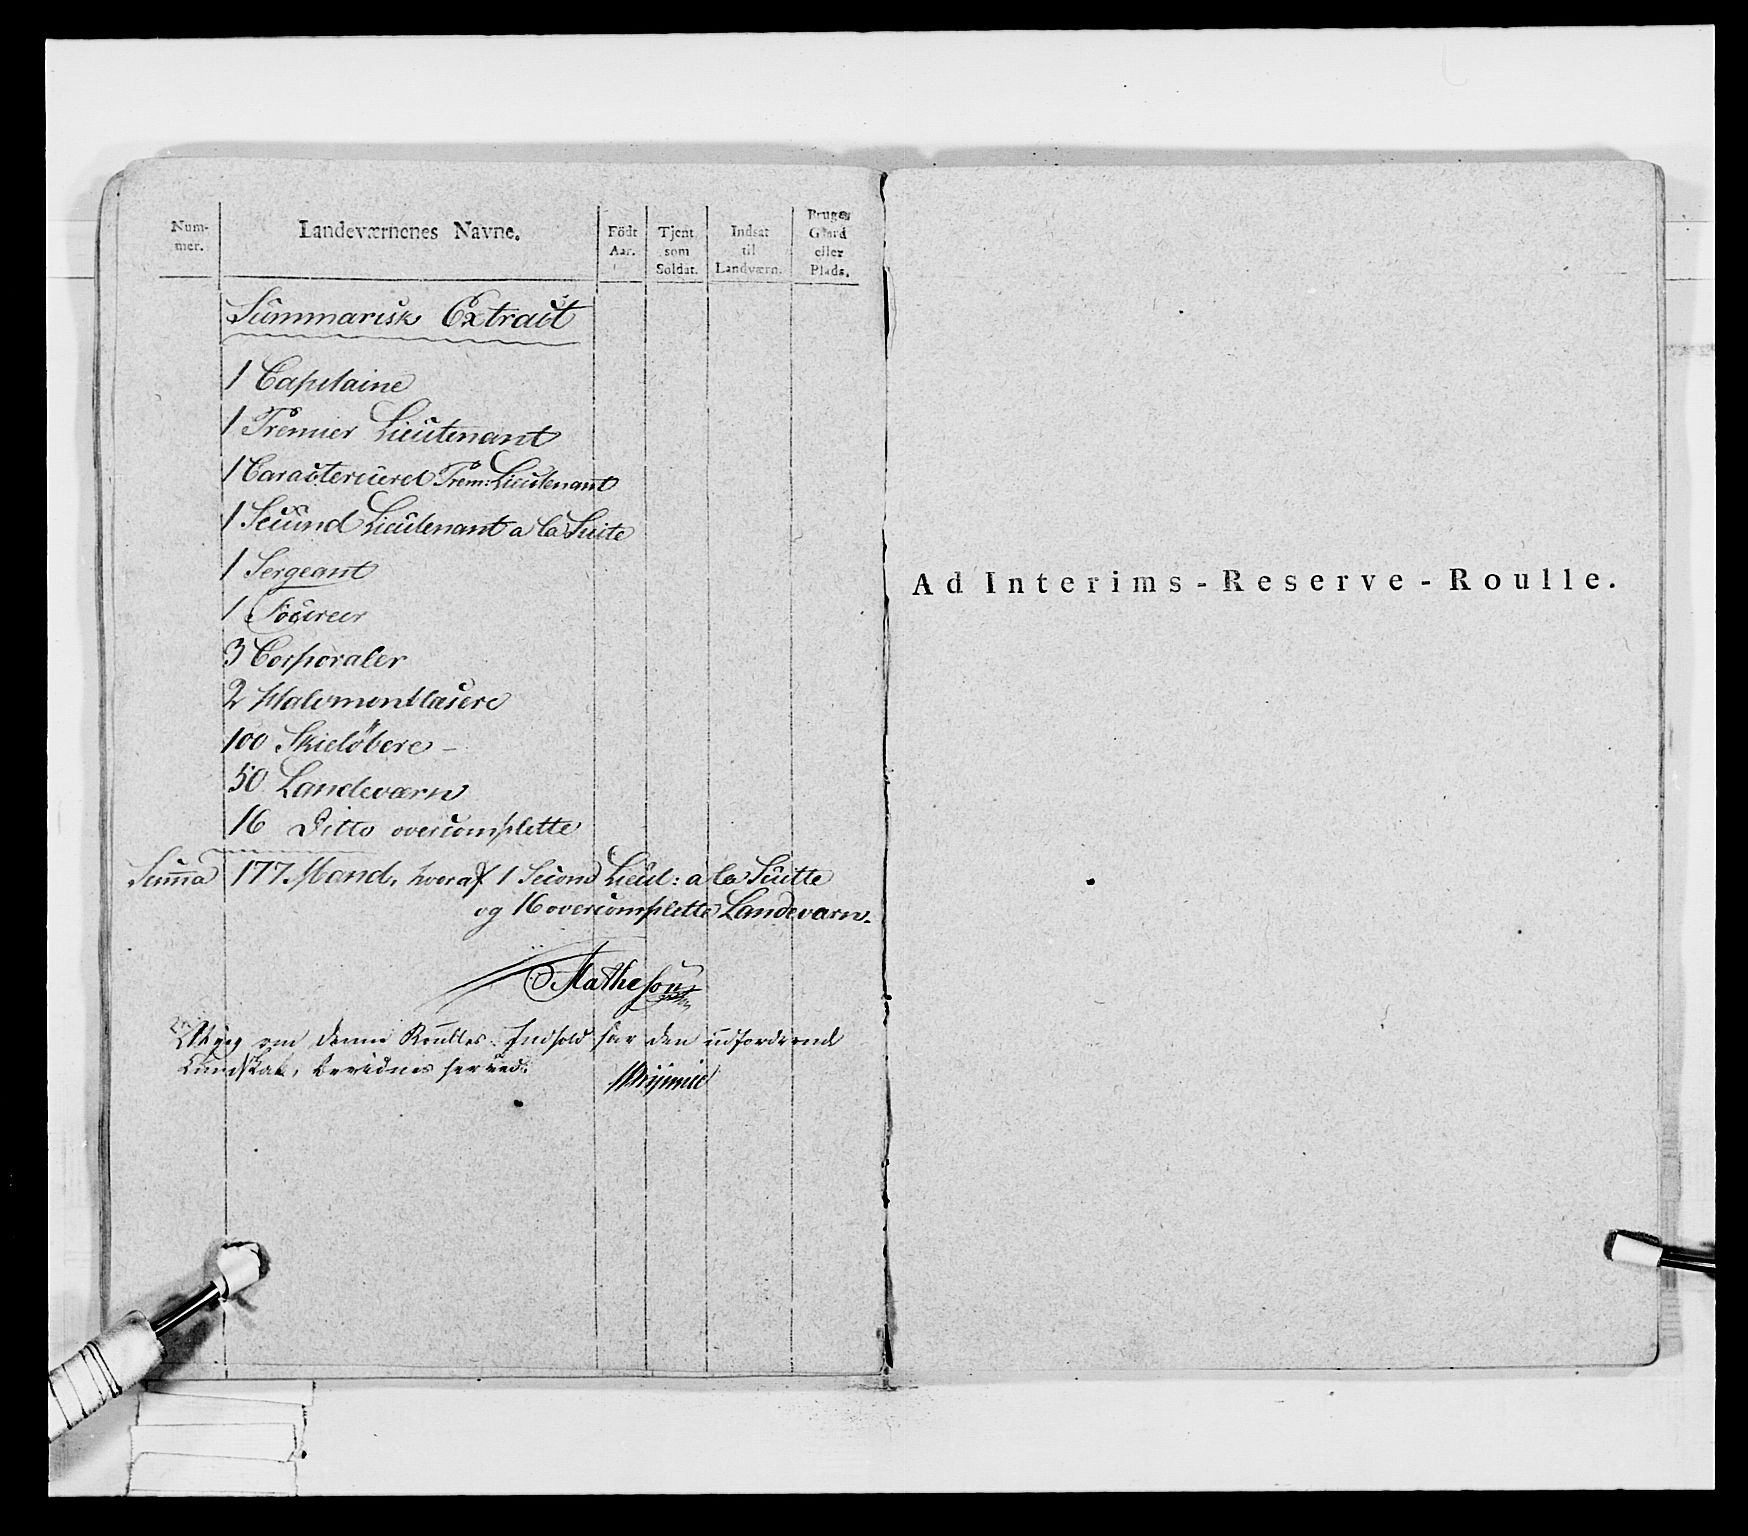 Num-
mer.
Landeværnenes Navne.
Födt
Aar.
Tjent
som
Soldat.
Indsat
til
Landværn.
Bruger
Gaard
eller
Plads.
Summarisk Extract
1 Capitaine
1 Premier Lieutenant
1 Caracteriseret Prem: Lieutenant
1 Secund Lieutenant a la Suite
1 Sergeant
1 Foureer
3 Corporaler
2 Halvmonblasere
100 Skieløbere
50 Landeværn
16 Ditto overcomplette
Summa 177 Mand, hvoraf 1 Second Lieut: a la Suitte
og 16 overcomplette Landeværn.
Matheson
om denne Roulles Indhold har den udfordrende
Kundskab, bevidnes herved.
Ad Interims-Reserve-Roulle.